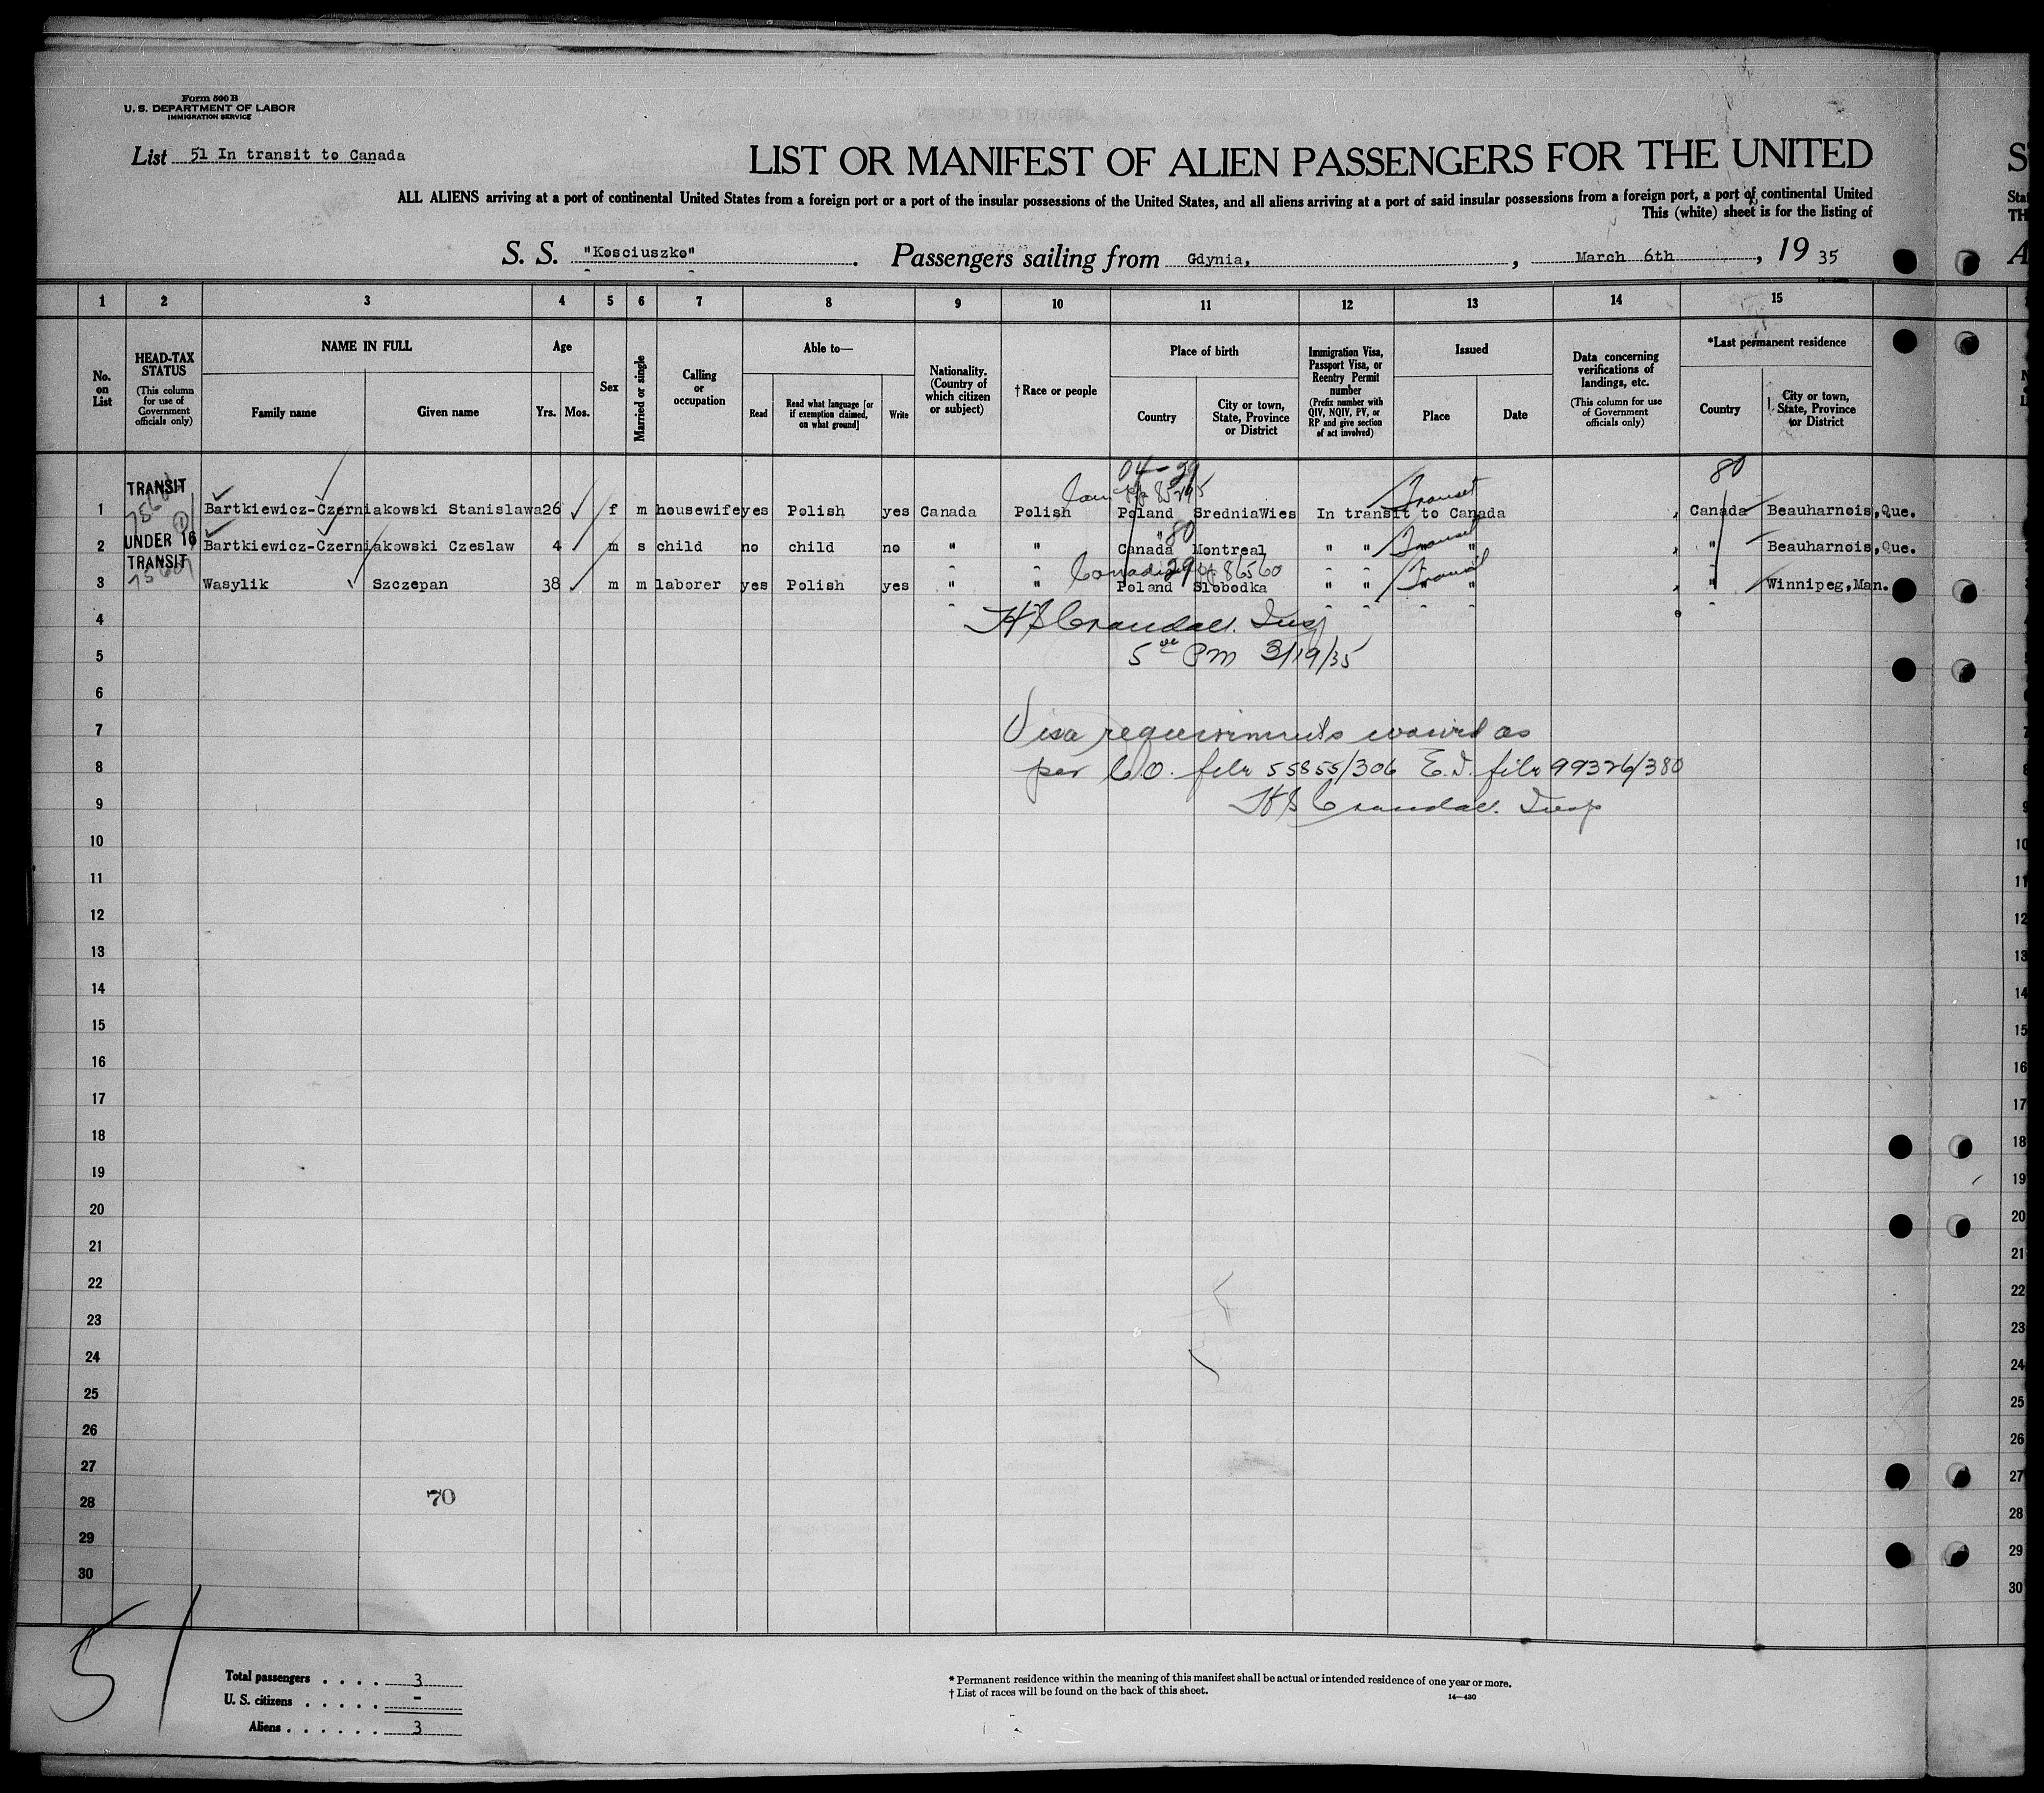 Form 500 B
U. S. DEPARTMENT OF LABOR
IMMIGRATION SERVICE
List 51 In transit to Canada
LIST OR MANIFEST OF ALIEN PASSENGERS FOR THE UNITED
ALL ALIENS arriving at a port of continental United States from a foreign port or a port of the insular possessions of the United States, and all aliens arriving at a port of said insular possessions from a foreign port, a port of continental United
This (white) sheet is for the listing of
S. S. "Kosciuszko". Passengers sailing from Gdynia, , March 6th , 19 35
1 2 3 4 5 6 7 8 9 10 11 12 13 14 15
No. on List
HEAD-TAX STATUS
(This column for use of Government officials only)
NAME IN FULL
Family name Given name
Age
Yrs. Mos.
Sex
Married or single
Calling or occupation
Able to—
Read
Read what language [or if exemption claimed, on what ground]
Write
Nationality. (Country of which citizen or subject)
†Race or people
Place of birth
Country
City or town, State, Province or District
Immigration Visa, Passport Visa, or Reentry Permit number
(Prefix number with QIV, NQIV, PV, or RP and give section of act involved)
Issued
Place Date
Data concerning verifications of landings, etc.
(This column for use of Government officials only)
*Last permanent residence
Country
City or town, State, Province or District
80
TRANSIT
1 Bartkiewicz-Czerniakowski Stanislawa 26 f m housewife yes Polish yes Canada Polish Poland SredniaWies In transit to Canada Transit Canada Beauharnois, Que.
UNDER 16
80
2 Bartkiewicz-Czerniakowski Czeslaw 4 m s child no child no " " Canada Montreal " " " " Transit " Beauharnois, Que.
TRANSIT
29 86560
3 Wasylik Szczepan 38 m m laborer yes Polish yes " " Poland Slobodka " " " " Transit " Winnipeg, Man.
4 HS Crandall. Insp
5 5 00 PM 3/19/35
6
7 Visa requirements waived as
8 per C.O. file 55855/306 E.I. file 99326/380
9 HS Crandall. Insp
10
11
12
13
14
15
16
17
18
19
20
21
22
23
24
25
26
27
28 70
29
30
51
Total passengers . . . . 3
U. S. citizens . . . . . -
Aliens . . . . . . 3
* Permanent residence within the meaning of this manifest shall be actual or intended residence of one year or more.
† List of races will be found on the back of this sheet.
14—430